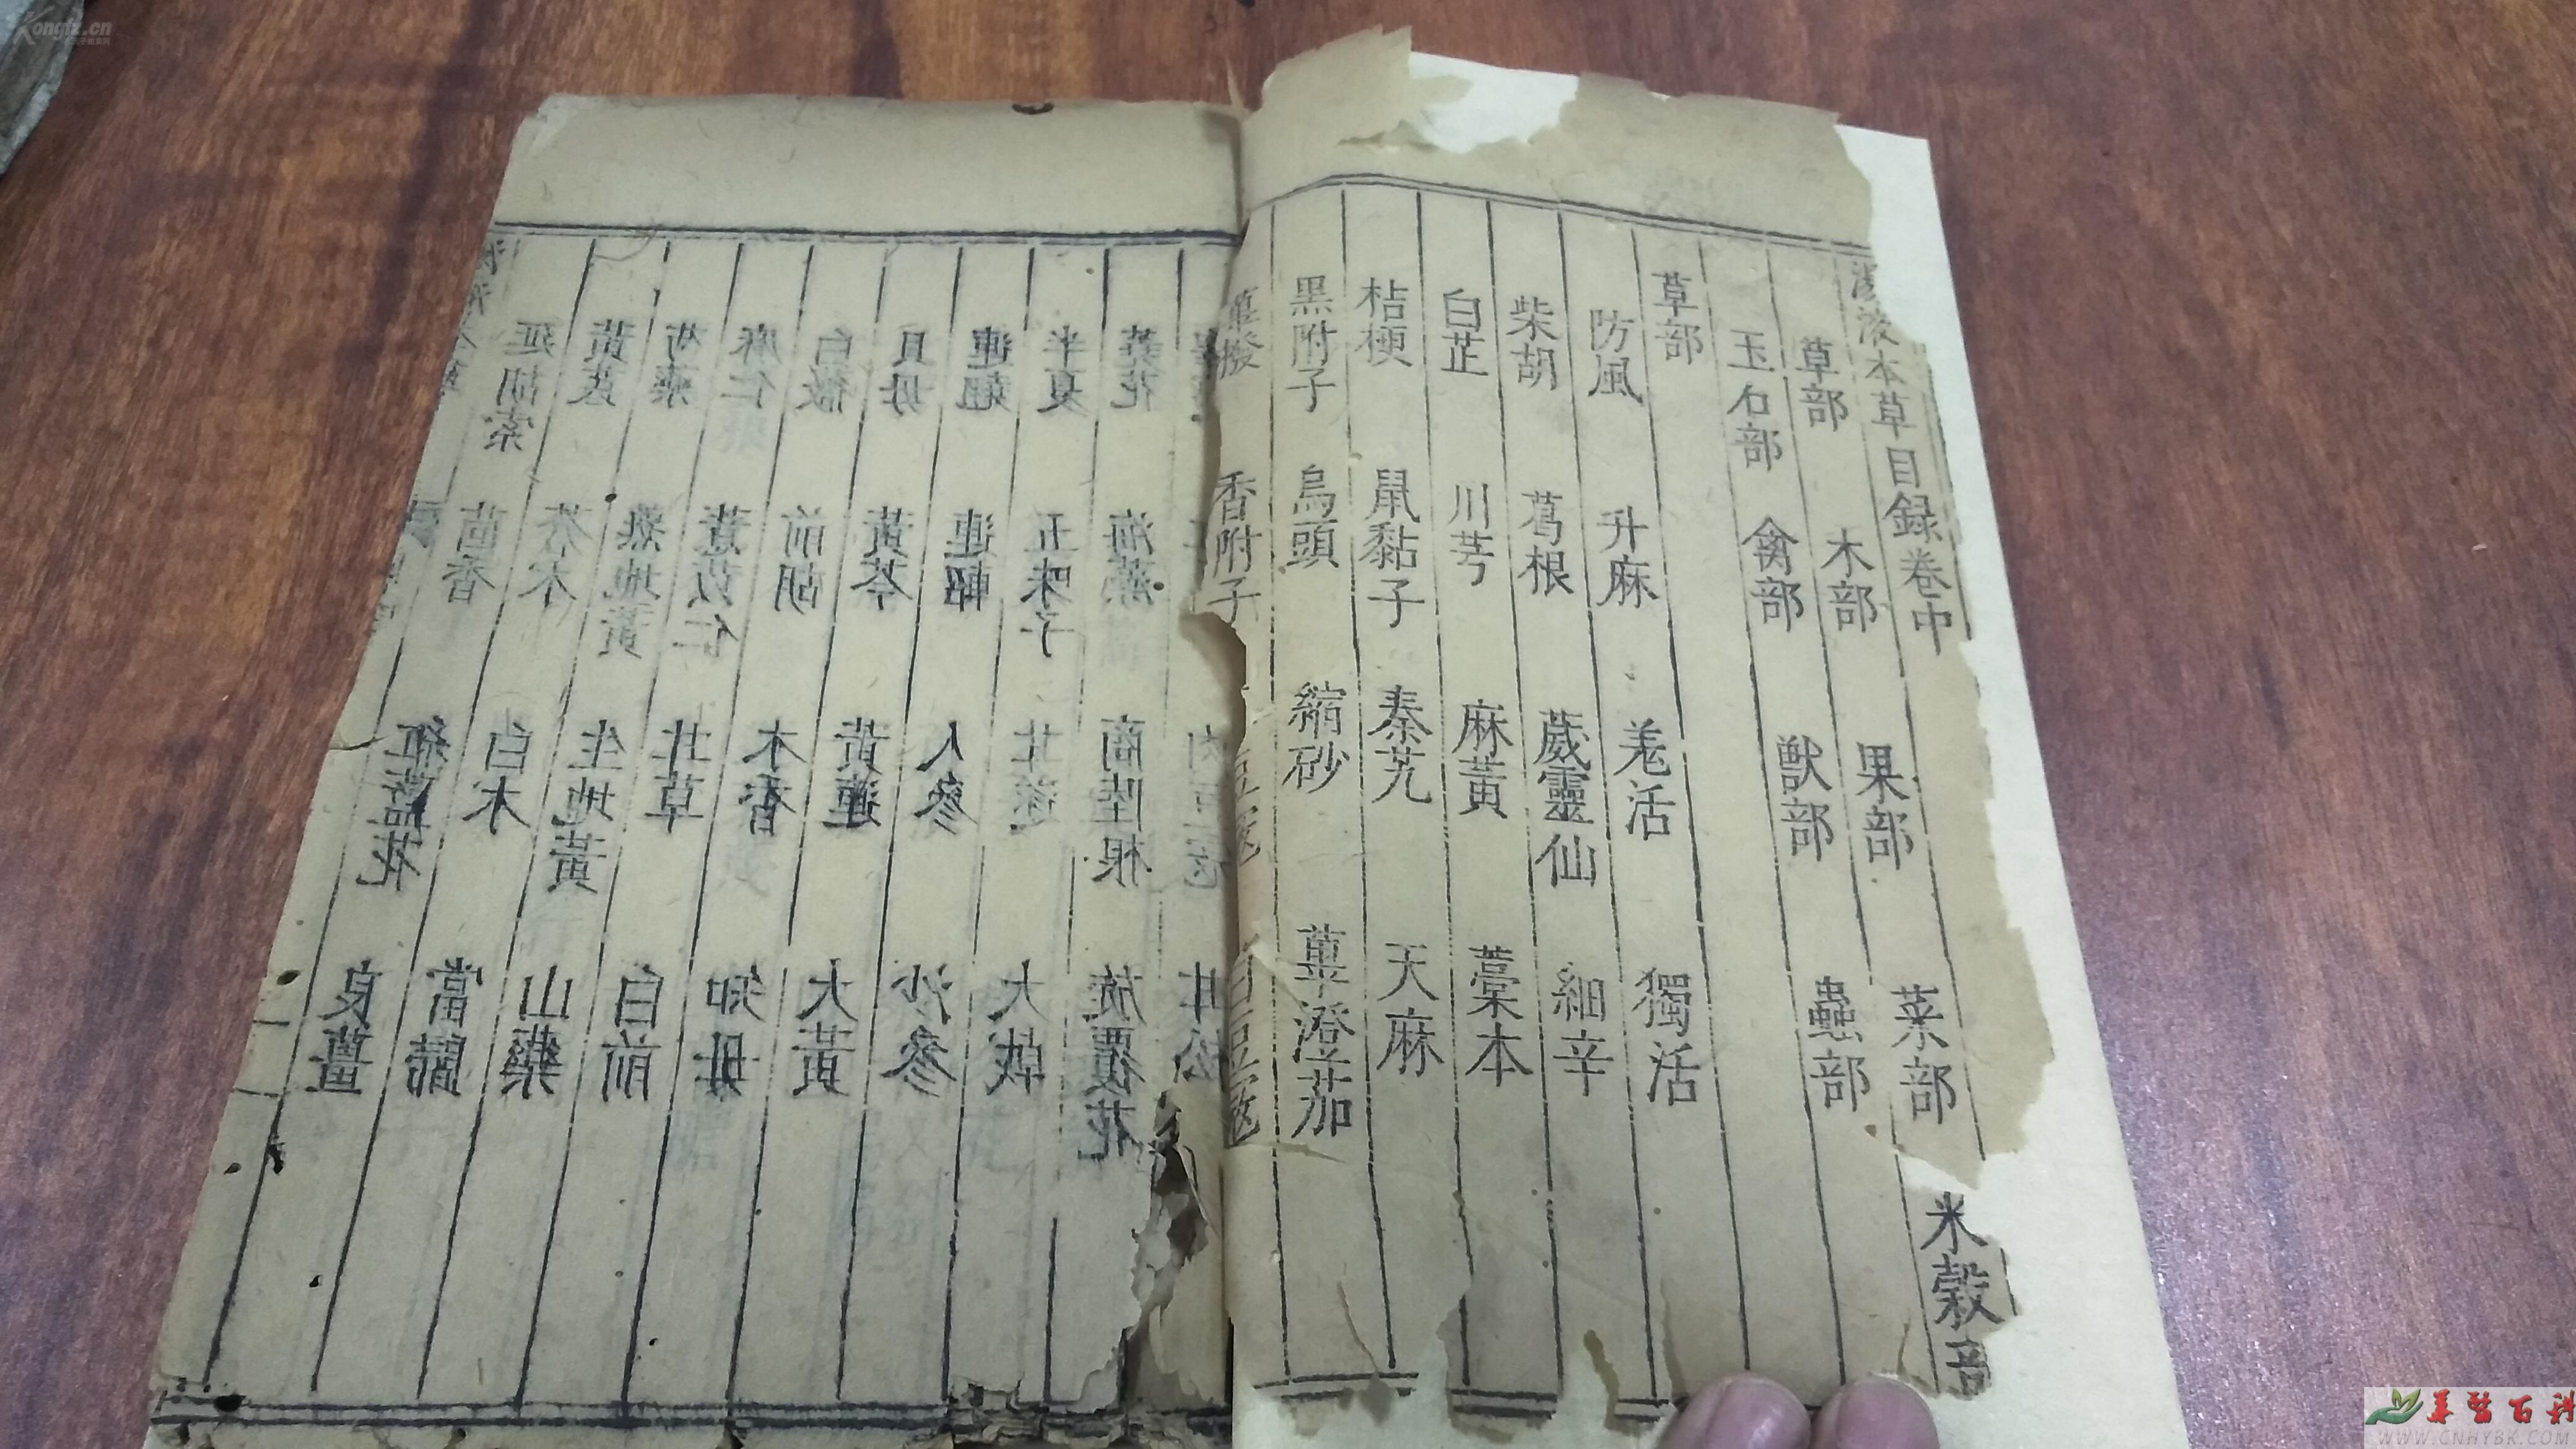 湯液本草目録卷中
草部 木部 果部 菜部 米穀部
玉石部 禽部 獣部 蟲部
草部
防風 升麻 羗活 獨活
柴胡 葛根 葳靈仙 細辛
白芷 川芎 麻黃 藁本
桔梗 鼠黏子 秦艽 天麻
黑附子 烏頭 縮砂 蓽澄茄
蓽撥 香附子
荛花 海藻 商陸根 旋覆花
半夏 五味子 甘遂 大戟
連翹 連軺 人參 沙參
貝母 黃芩 黃連 大黃
白薇 前胡 木香 知母
麻仁 薏苡仁 甘草 白前
芍藥 熟地黃 生地黃 山藥
黃芪 苍术 白术 當歸
延胡索 茴香 紅藍花 良薑
Kongfz.cn
華醫百科
WWW.CNHYBK.COM